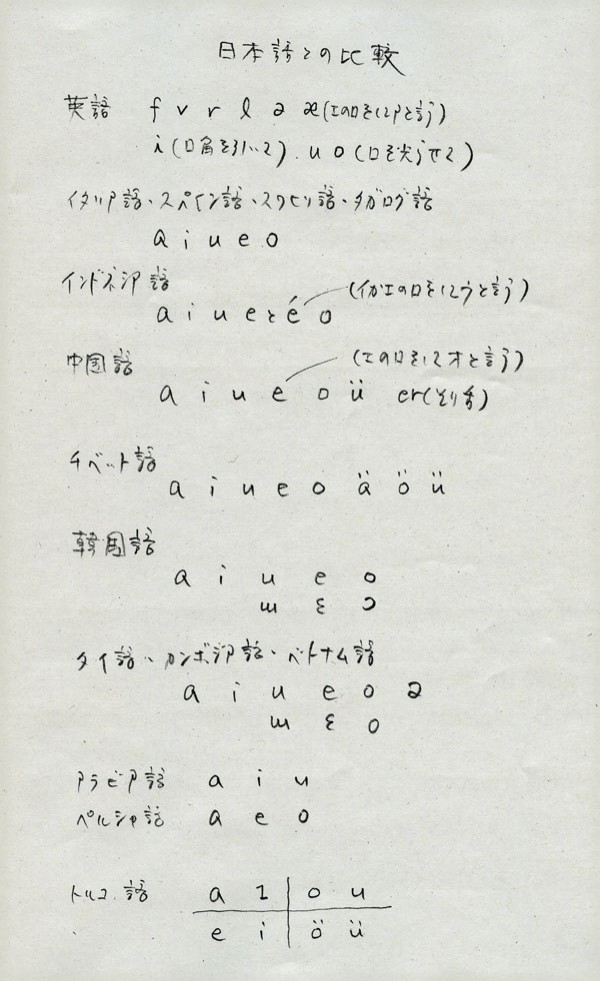 日本語との比較
英語 f v r l ə æ(エの口をしてアと言う)
i (口角を引いて). u o (口を尖らせて)
イタリア語、スペイン語、スワヒリ語、タガログ語
a i u e o
インドネシア語 (イかエの口をしてウと言う)
a i u e と é o
中国語 (エの口をしてオと言う)
a i u e o ü er(そり舌)
チベット語
a i u e o ä ö ü
韓国語
a i u e o
ɯ ε ɔ
タイ語、カンボジア語、ベトナム語
a i u e o ə
ɯ ε o
アラビア語 a i u
ペルシャ語 a e o
トルコ語 a ı o u
e i ö ü